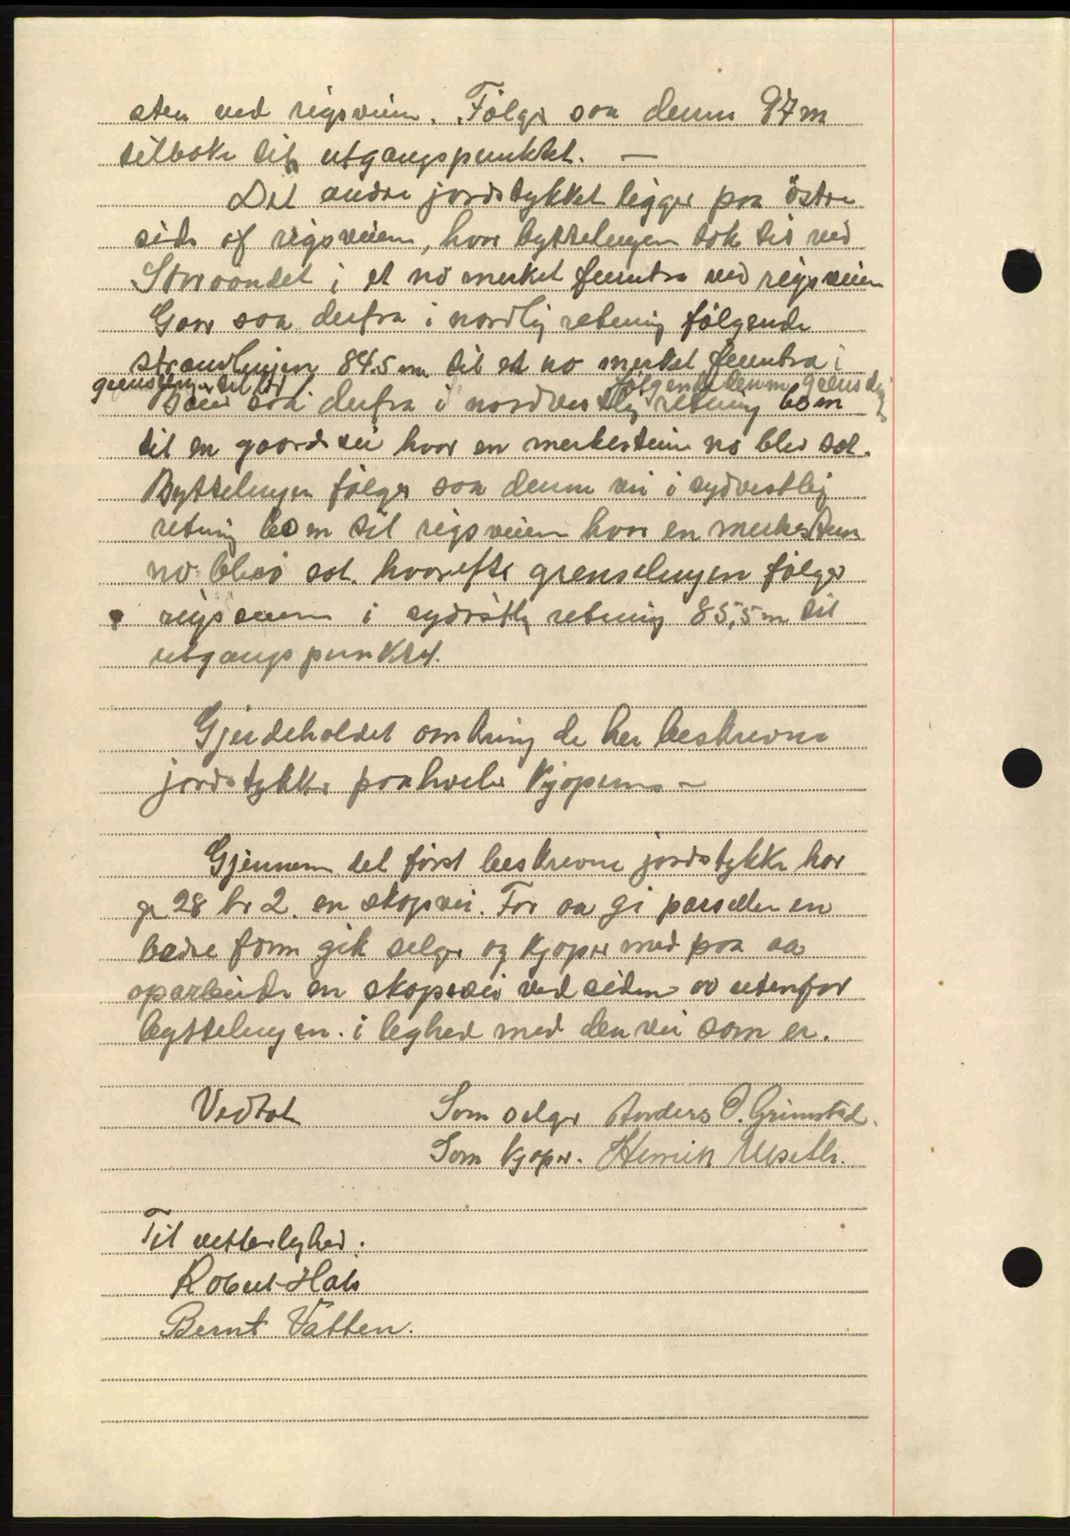 sten ved rigsveien. Følger saa denne 97 m
tilbake til utgangspunktet. —
Det andre jordstykket ligger paa östre
side af rigsveien, hvor byttelinjen tok til ved
i et no merket furutræ ved rigsveien
Gaar saa derfra i nordlig retning følgende
strandlinjen 84.5 m til et no merket furutræ i
følgende denne
Gaar saa derfra i nordvestlig retning 60 m
til en gaardsvei hvor en merkestein no blev sat.
Byttelinjen følger saa denne vei i sydvestlig
retning 60 m til rigsveien hvor en merkestein
no blev sat. hvorefter grenselinjen følger
rigsveien i sydöstlig retning 85,5 m til
utgangspunktet.
Gjerdeholdet omkring de her beskrevne
jordstykker paahviler kjøperen —
Gjennem det först beskrevne jordstykke har
gr 28 br 2. en skogsvei. For aa gi parsellen en
bedre form gik selger og kjøper med paa aa
oparbeide en skogsvei ved siden av utenfor
byttelinjen. i lighed med den vei som er.
Vedtat Som selger Anders O. Grimstad.
Som kjøper. Henrik
Til vitterlighed.
Robert Hals
Bernt Vatten.